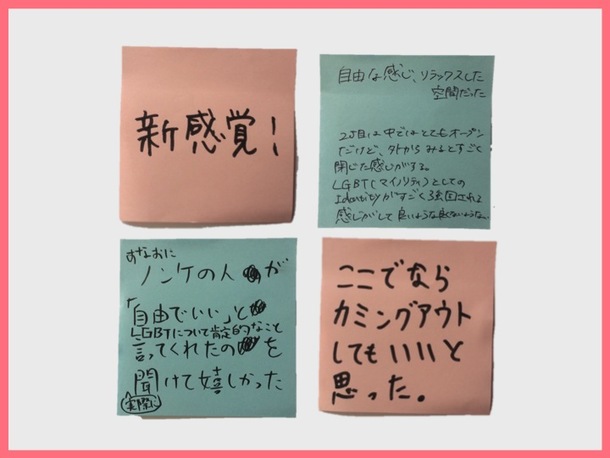 新感覚!
自由な感じ、リラックスした
空間だった
2丁目は中ではとてもオープン
だけど、外からみるとすごく
閉じた感じがする。
LGBT(マイノリティ)としての
Identityがすごく強固される
感じがして良いような良くないような
すなおに
ノンケの人が
「自由でいい」と
LGBTについて肯定的なこと
言ってくれたのを
聞けて嬉しかった
実際に
ここでなら
カミングアウト
してもいいと
思った。